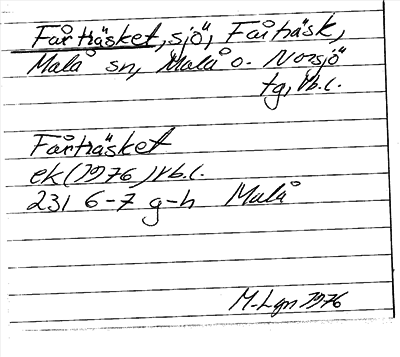 Fårträsket, sjö, Fårträsk,
Malå sn, Malå o. Norsjö
tg, Vb.l.
Fårträsket
ek (1976) Vb.l.
231 6-7 g-h Malå
M. Lgn 1976